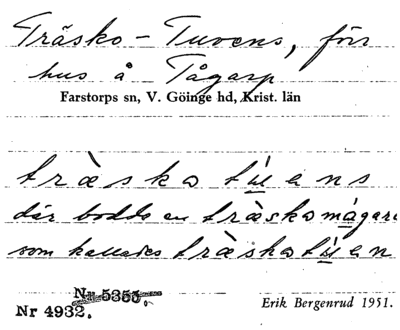 Träsko-Tuvens, förr
hus å Tågarp
Farstorps sn, V. Göinge hd, Krist. län
träska tuens
där bodde en träskamågare
som kallades träskatuen
Nr 5353.
Nr 4932.
Erik Bergenrud 1951.